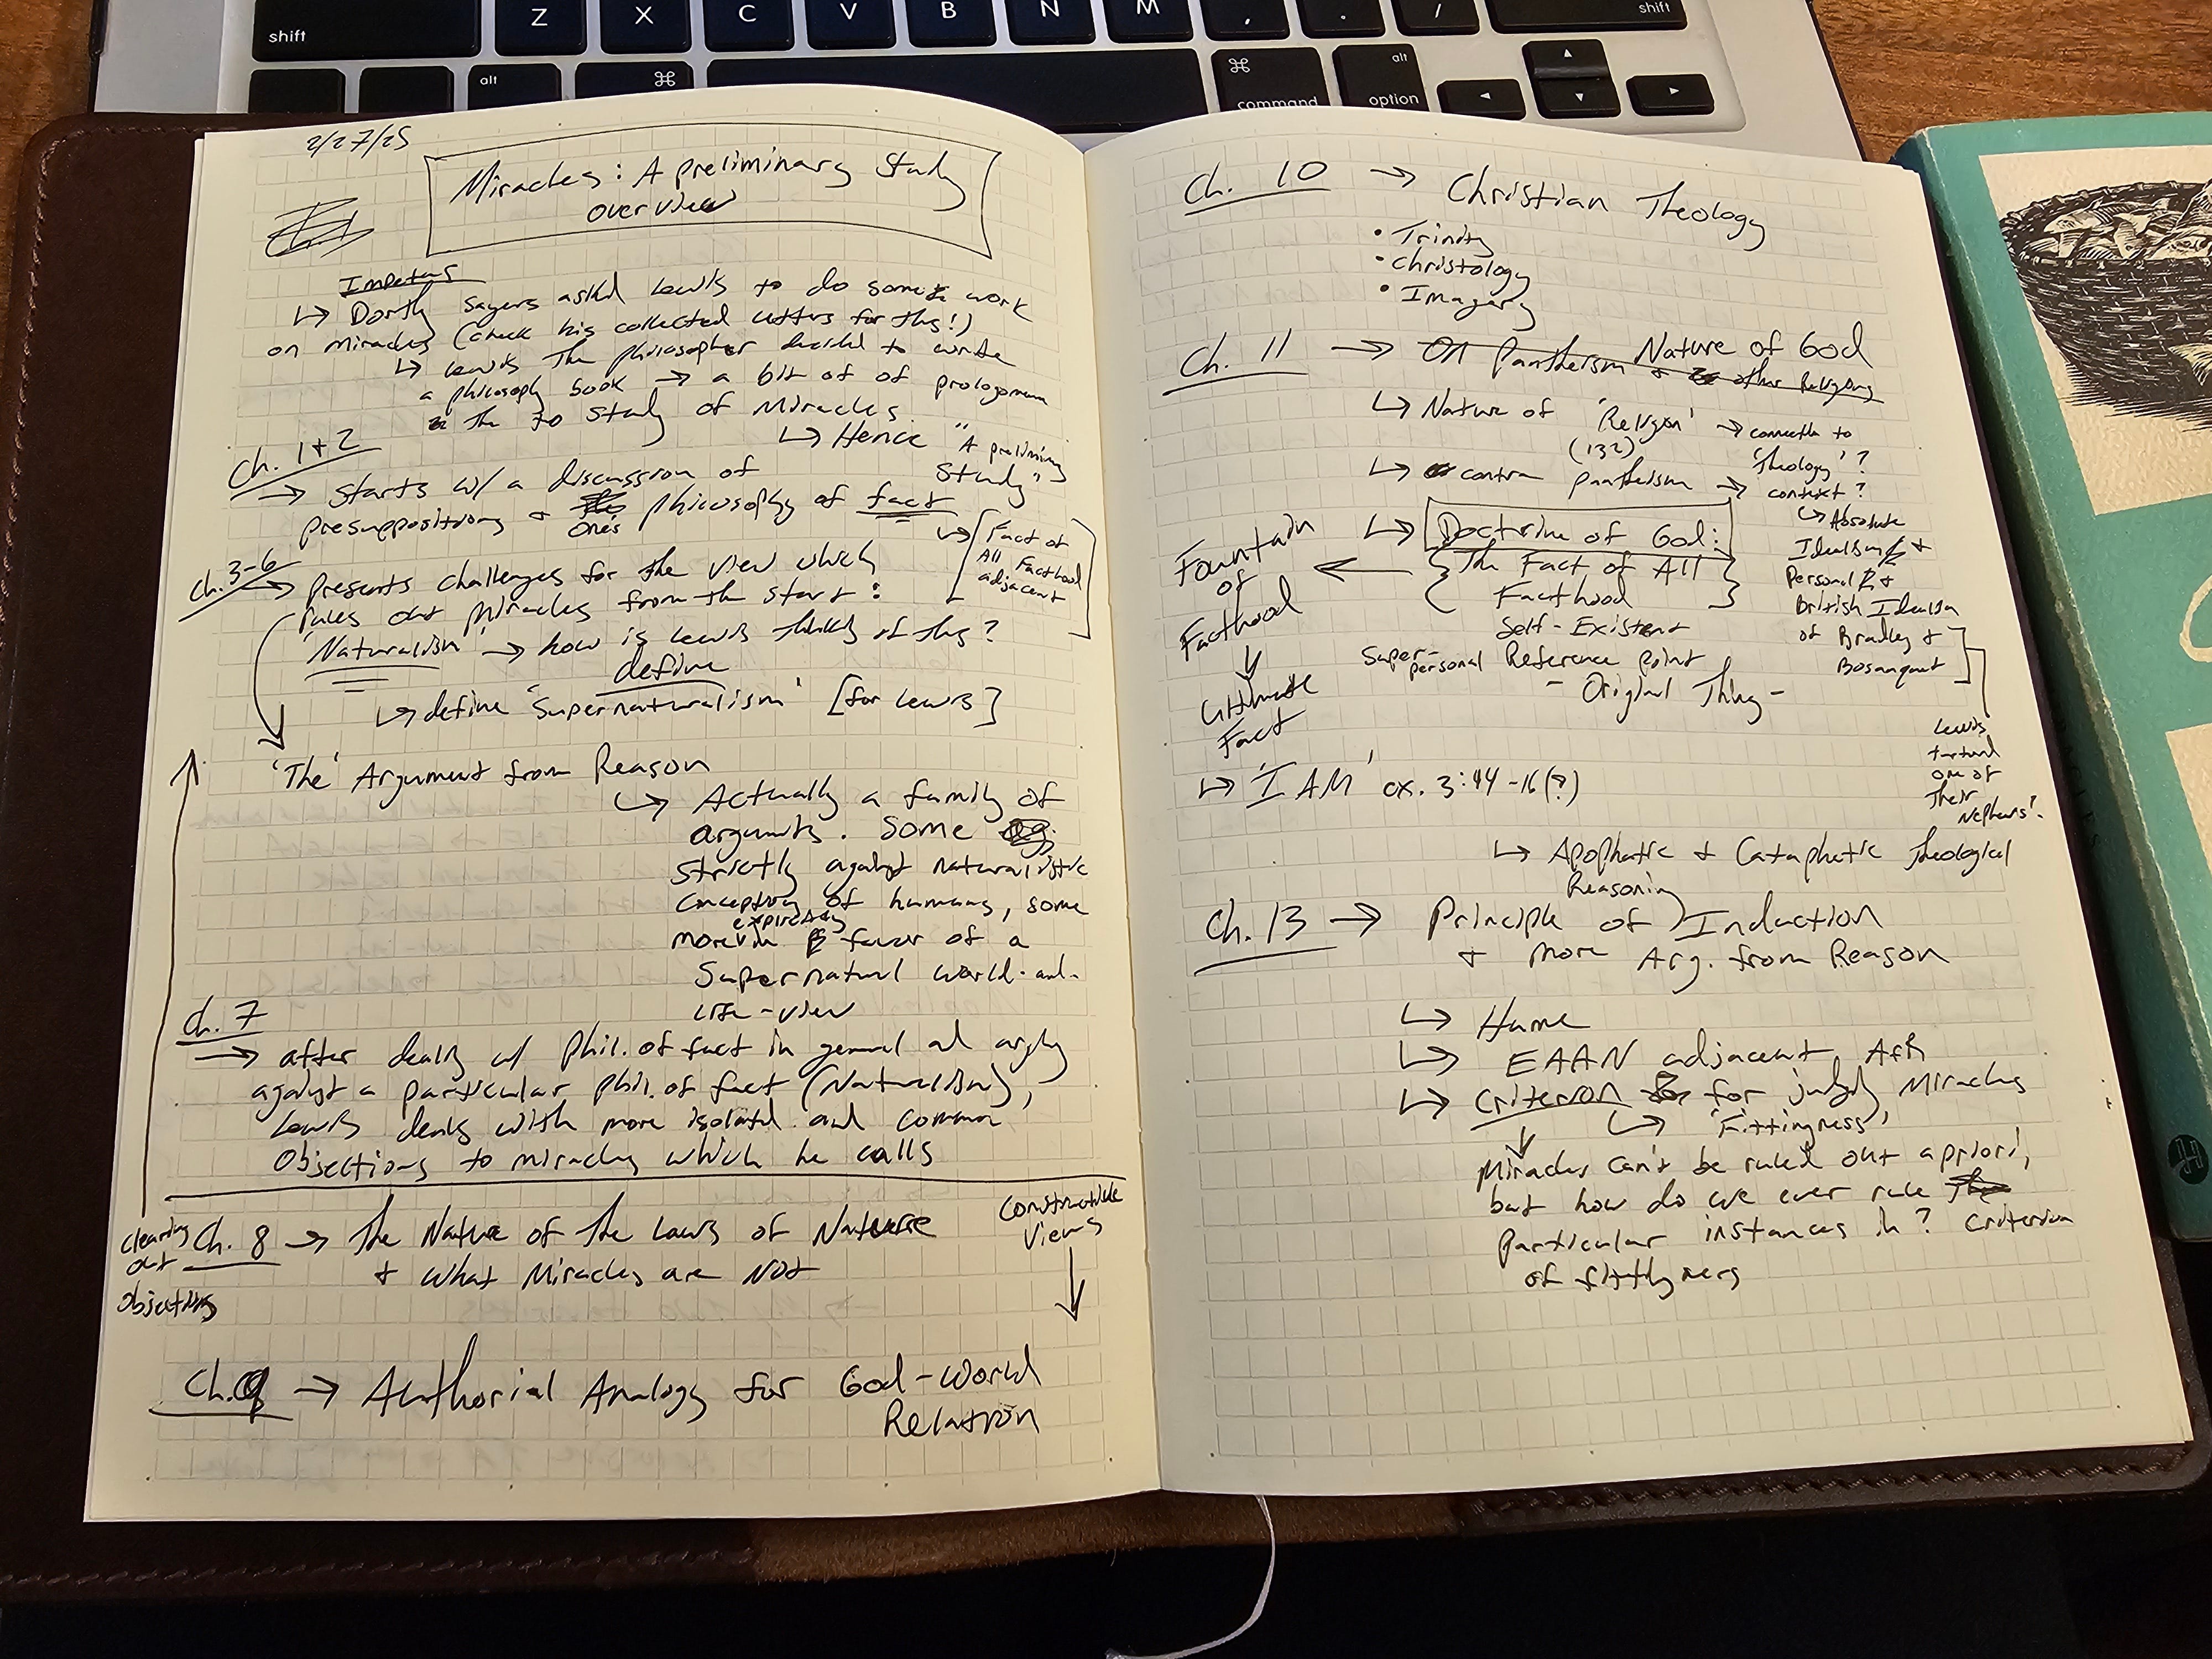 shift
Z
X
C
V
B
N
M
,
.
/
shift
alt
⌘
⌘
command
alt
option
2/27/25
Miracles: A preliminary Study
overview
Impetus
↳ Dorthy Sayers asked Lewis to do some work
on miracles (check his collected letters for this!)
↳ Lewis the philosopher decided to write
a philosophy book → a bit of of prologomena
the to study of Miracles.
↳ Hence "A preliminary
Study"
Ch. 1+2
→ starts w/ a discussion of
presuppositions + one's philosophy of fact
↳ [Fact of
All Facthood
adjacent]
Ch. 3-6
→ presents challenges for the view which
rules out miracles from the start:
'Naturalism' → how is Lewis thinking of this?
define
↳ define 'Supernaturalism' [for Lewis]
'The' Argument from Reason
↳ Actually a family of
arguments. Some
strictly against naturalistic
conception of humans, some
more in favor of a
Supernatural world-and-
life-view
Ch. 7
→ after dealing w/ phil. of fact in general and arguing
against a particular phil. of fact (Naturalism),
Lewis deals with more isolated and common
objections to miracles which he calls
clearing
out
objections
Constructive
Views
↓
Ch. 8 → The Nature of the Laws of Nature
+ what Miracles are NOT
Ch. 9 → Authorial Analogy for God-World
Relation
Ch. 10 → Christian Theology
• Trinity
• Christology
• Imagery
Ch. 11 → On Pantheism + other Religions Nature of God
↳ Nature of 'Religion' → connection to
(132)
'Theology'?
↳ contra pantheism → context?
↳ Absolute
Idealism +
Personal +
British Idealism
of Bradley +
Bosanquet
Lewis
tutored
one of
their
nephews!
↳ Doctrine of God:
{The Fact of All
Facthood}
Self-Existent
Super-personal Reference point
- Original Thing -
Fountain
of
Facthood
↓
Ultimate
Fact
↳ 'I AM' ex. 3:14-16(?)
↳ Apophatic + Cataphatic Theological
Reasoning
Ch. 13 → Principle of Induction
+ more Arg. from Reason
↳ Hume
↳ EAAN adjacent AfR
↳ Criterion for judging Miracles
↳ 'Fittingness'
Miracles can't be ruled out apriori,
but how do we ever rule
particular instances in? Criterion
of fittingness